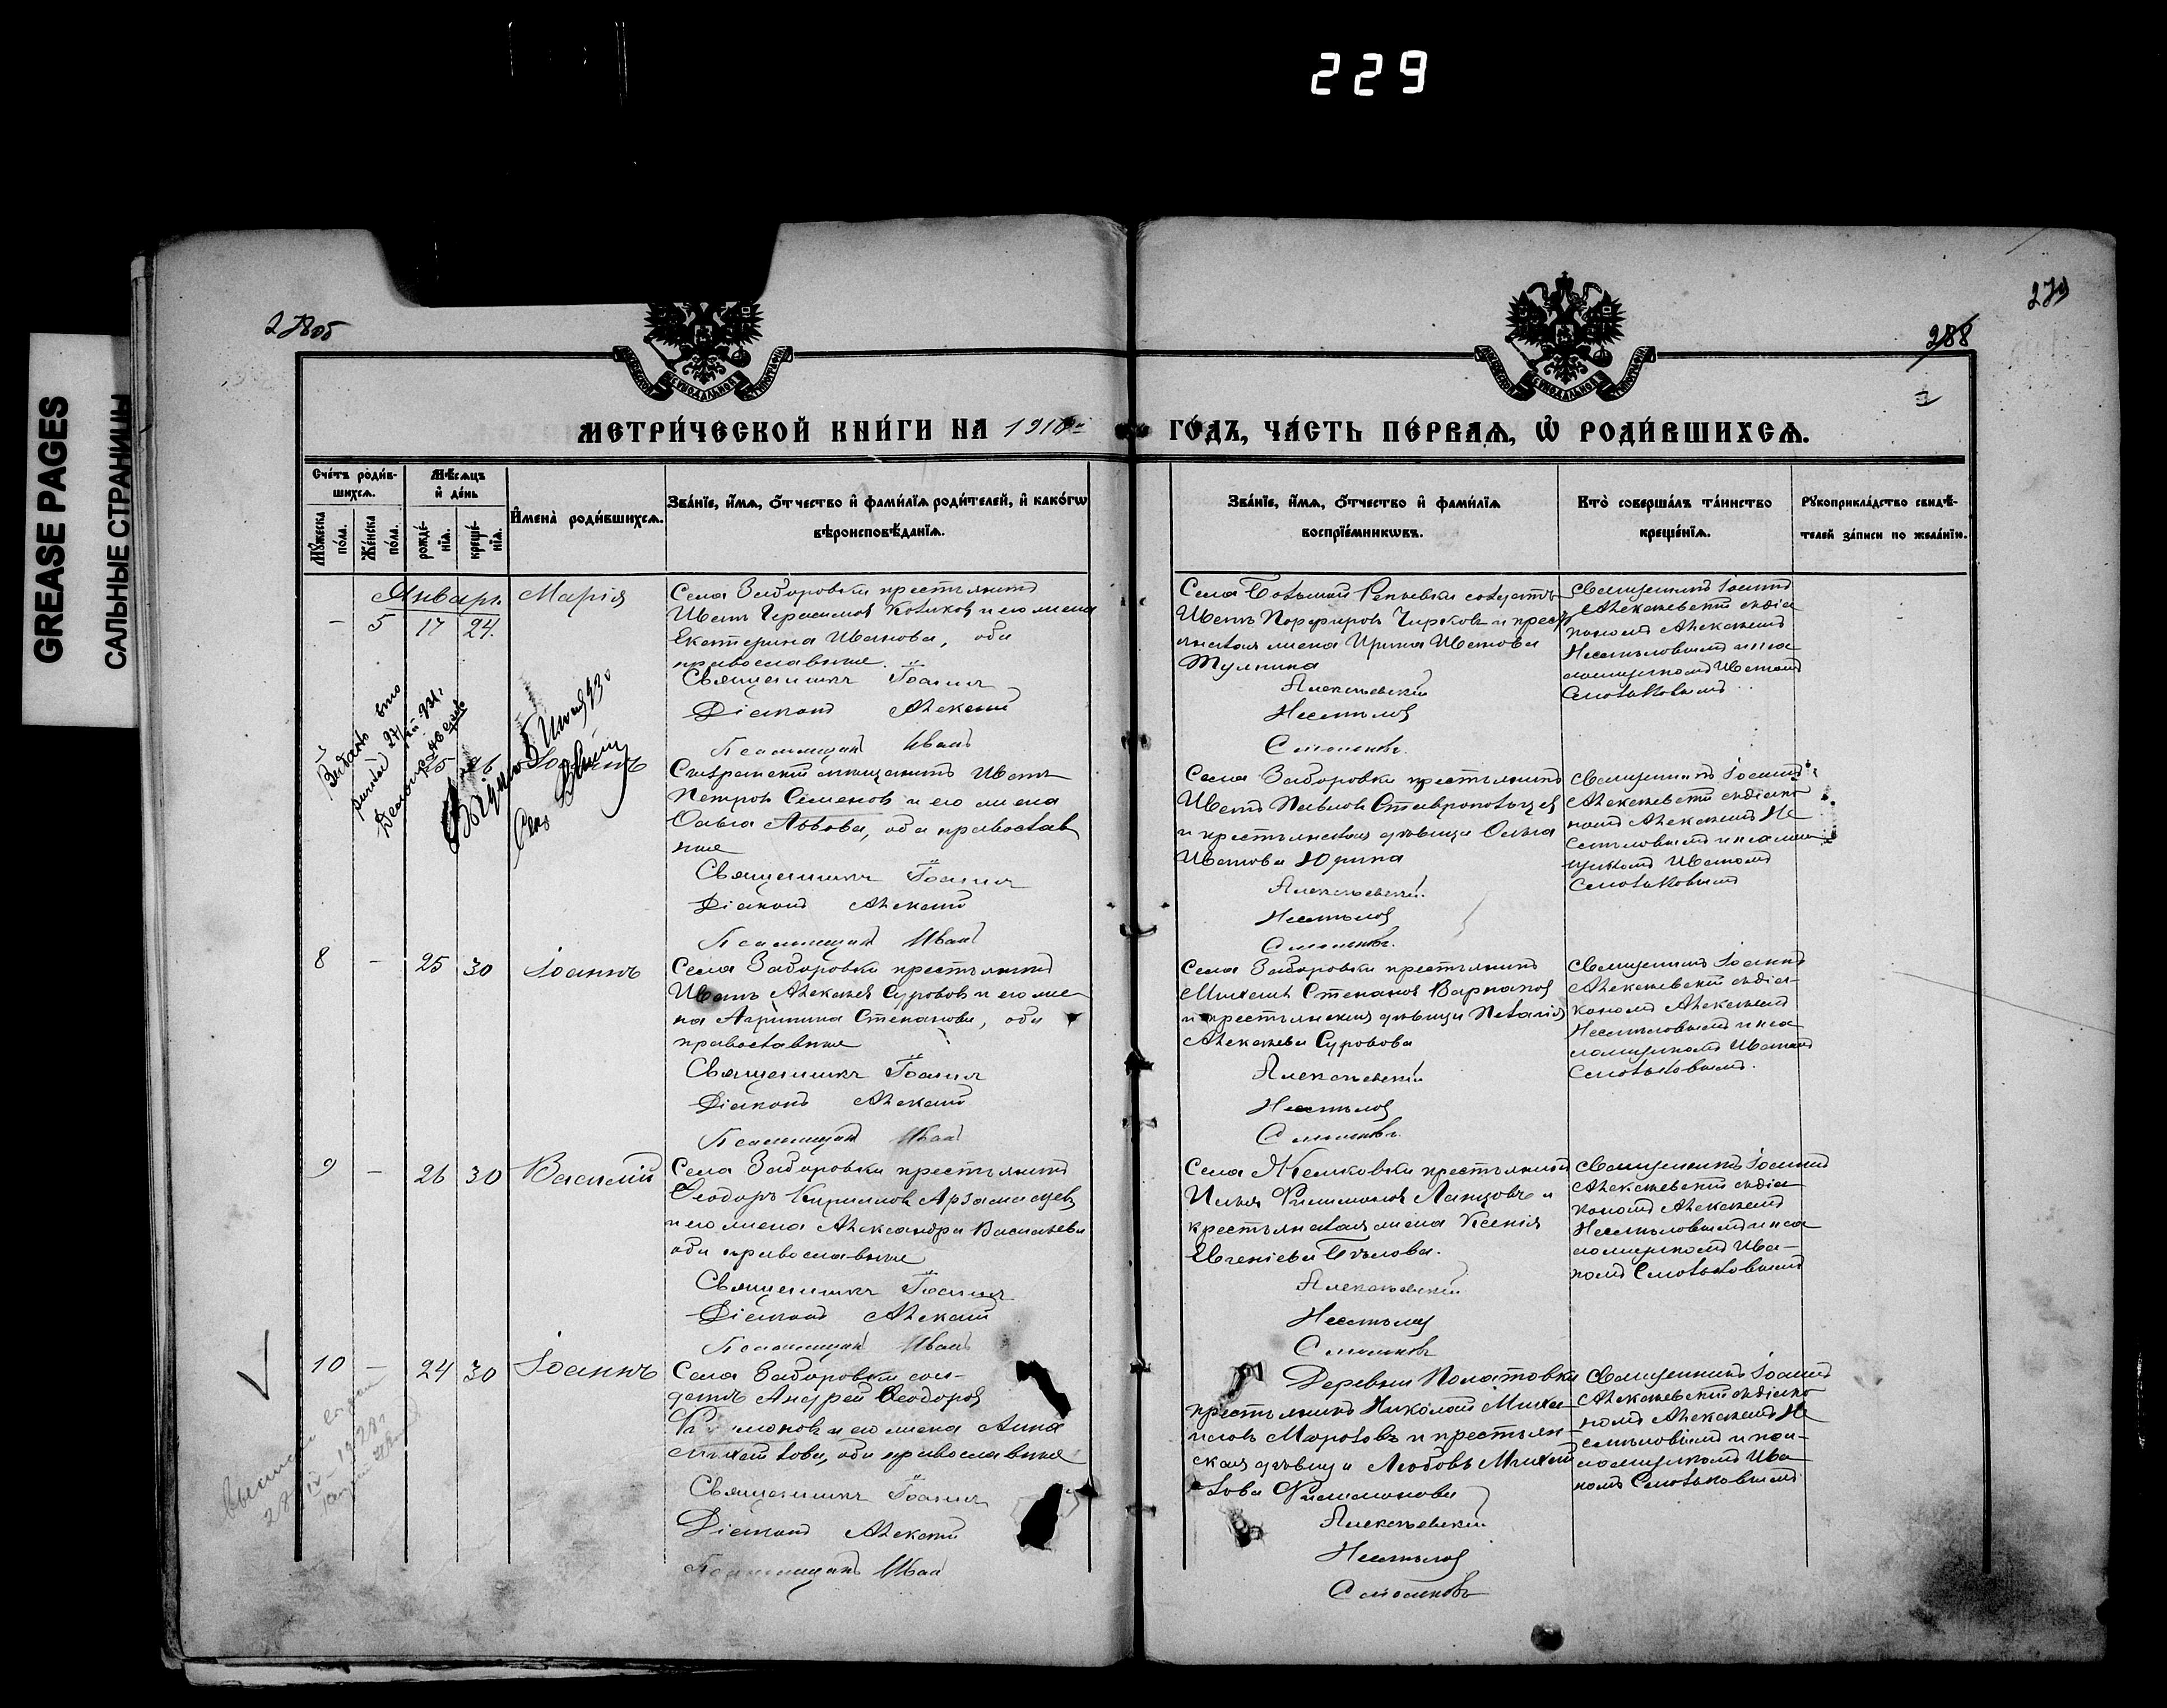 229
GREASE PAGES
САЛЬНЫЕ СТРАНИЦЫ
278об
279
288
МЕТРИ́ЧЕСКОЙ КНИ́ГИ НА 191
ГО́ДЪ, ЧА́СТЬ ПЕ́РВАѦ, Ѡ҆ РОДИ́ВШИХСѦ.
Сче́тъ роди́в-
шихсѧ.
Мꙋ́жеска по́ла.
Же́нска по́ла.
Мѣ́сѧцъ
и҆ де́нь
рожде́-
нїѧ.
креще́-
нїѧ.
И҆мена̀ роди́вшихсѧ.
Зва́нїе, и҆́мѧ, ѻ҆́тчество и҆ фами́лїѧ роди́телей, и҆ како́гѡ
вѣроисповѣ́данїѧ.
Зва́нїе, и҆́мѧ, ѻ҆́тчество и҆ фами́лїѧ
воспрїе́мникѡвъ.
Кто̀ соверша́лъ та́инство
креще́нїѧ.
Рꙋкоприкла́дство свидѣ́-
телей за́писи по жела́нїю.
Январь
– 5 17 24. Марія
Села Заборовки крестьянинъ
Иванъ Герасимовъ Котиковъ и его жена
Екатерина Иванова, оба
православные.
Священникъ Іоаннъ
Діаконъ Алексій
Псаломщикъ Иванъ
Села Большой Репьевки солдатъ
Иванъ Порфировъ Чирковъ и крест
янская жена Ирина Иванова
Тулкина
Алексѣевскій
Неспѣловъ
Смольковъ.
Священникъ Іоаннъ
Алексѣевскій съ діа
кономъ Алексіемъ
Неспѣловымъ и пса
ломщикомъ Иваномъ
Смольковымъ
Іоаннъ
Сызранскій мѣщанинъ Иванъ
Петровъ Семеновъ и его жена
Ольга Львова, оба православ
ные
Священникъ Іоаннъ
Діаконъ Алексій
Псаломщикъ Иванъ
Села Заборовки крестьянинъ
Иванъ Павловъ Ставропольцевъ
и крестьянская дѣвица Ольга
Иванова Юрина
Алексѣевскій.
Неспѣловъ
Смольковъ.
Священникъ Іоаннъ
Алексѣевскій съ діако
номъ Алексіемъ Не
спѣловымъ и псалом
щикомъ Иваномъ
Смольковымъ
8 – 25 30 Іоаннъ
Села Заборовки крестьянинъ
Иванъ Алексѣевъ Сурововъ и его же
на Агрипина Степанова, оба
православные
Священникъ Іоаннъ
Діаконъ Алексій
Псаломщикъ Иванъ
Села Заборовки крестьянинъ
Михаилъ Степановъ Варламовъ
и крестьянская дѣвица Пелагія
Алексѣева Суровова
Алексѣевскій
Неспѣловъ
Смольковъ.
Священникъ Іоаннъ
Алексѣевскій съ діа-
кономъ Алексіемъ
Неспѣловымъ и пса
ломщикомъ Иваномъ
Смольковымъ.
9 – 26 30 Василій
Села Заборовки крестьянинъ
Ѳеодоръ Кирилловъ Арзамасцевъ
и его жена Александра Васильева
оба православные
Священникъ Іоаннъ
Діаконъ Алексій
Псаломщикъ Иванъ
Села Жемковки крестьянинъ
Илья Филимоновъ Лапшовъ и
крестьянская жена Ксенія
Евгеніева Бѣлова.
Алексѣевскій
Неспѣловъ
Смольковъ
Священникъ Іоаннъ
Алексѣевскій съ діа
кономъ Алексіемъ
Неспѣловымъ и пса
ломщикомъ Ива-
номъ Смольковымъ
10 – 24 30 Іоаннъ
Села Заборовки сол-
датъ Андрей Ѳеодоровъ
Филимоновъ и его жена Анна
Михайлова, оба православные
Священникъ Іоаннъ
Діаконъ Алексій
Псаломщикъ Иванъ
Деревни Полатовки
крестьянинъ Николай Михаи-
ловъ Моровъ и крестьян-
ская дѣвица Любовь Михай
лова Филимонова
Алексѣевскій
Неспѣловъ
Смольковъ
Священникъ Іоаннъ
Алексѣевскій съ діако
номъ Алексіемъ Не
спѣловымъ и пса-
ломщикомъ Ива
номъ Смольковымъ